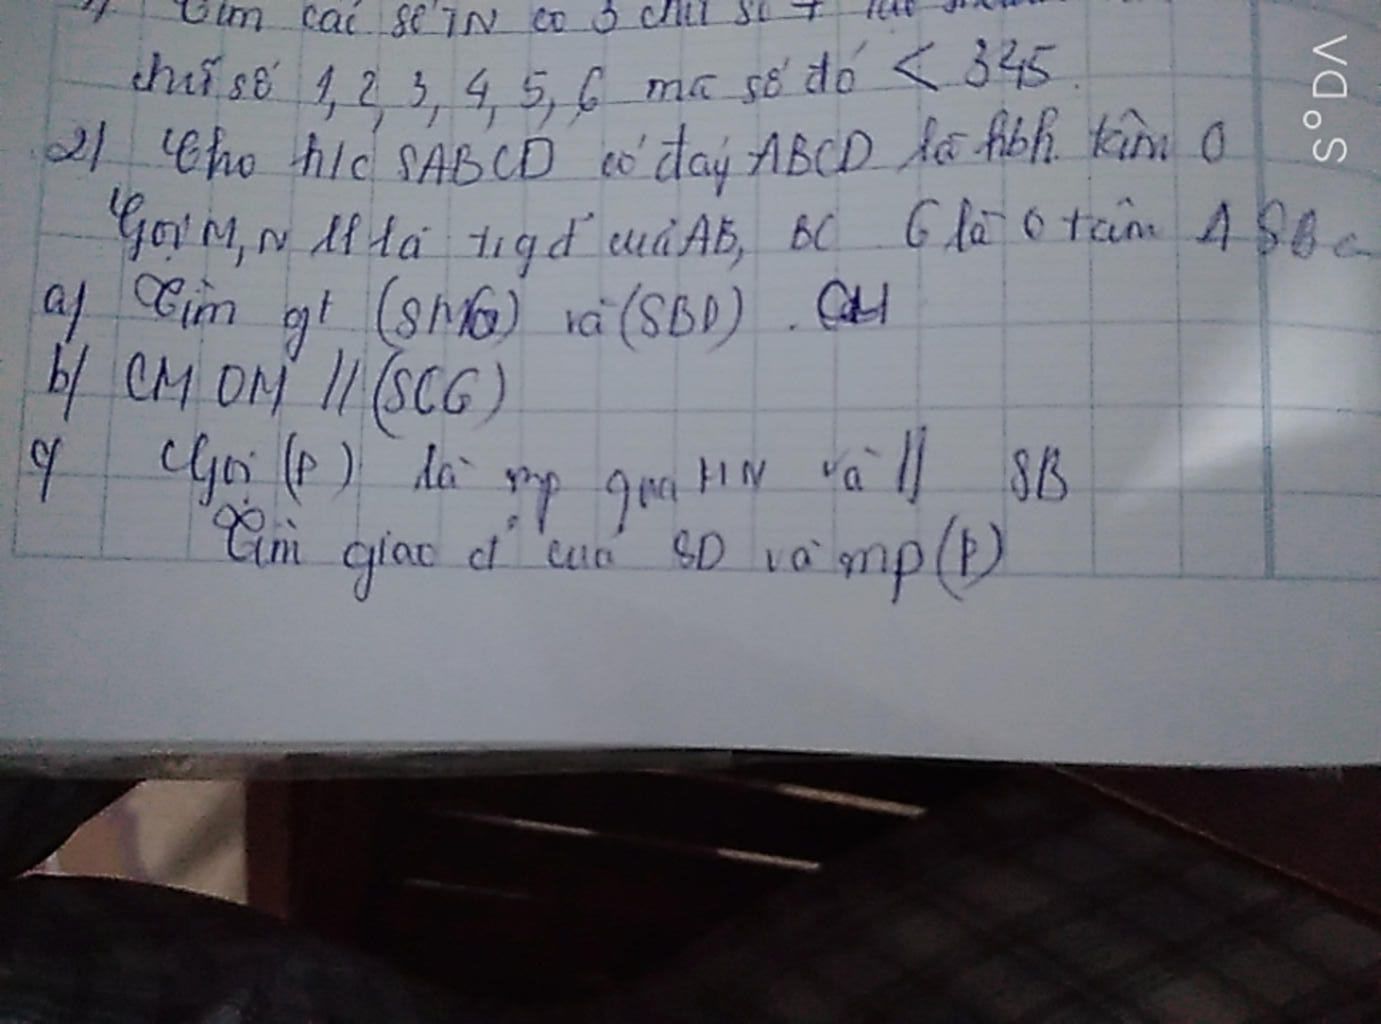 Tìm các số TN có 3 chữ số
chữ số 1, 2, 3, 4, 5, 6 mà số đó < 345
2) Cho h/c SABCD có đáy ABCD là hbh tâm O
Gọi M, N là tđ của AB, BC G là tâm SBC
a) Tìm gt (SMG) và (SBD).
b) CM OM // (SCG)
c) Gọi (P) là mp qua MN và // SB
Tìm giao đ' của SD và mp (P)
VD°S